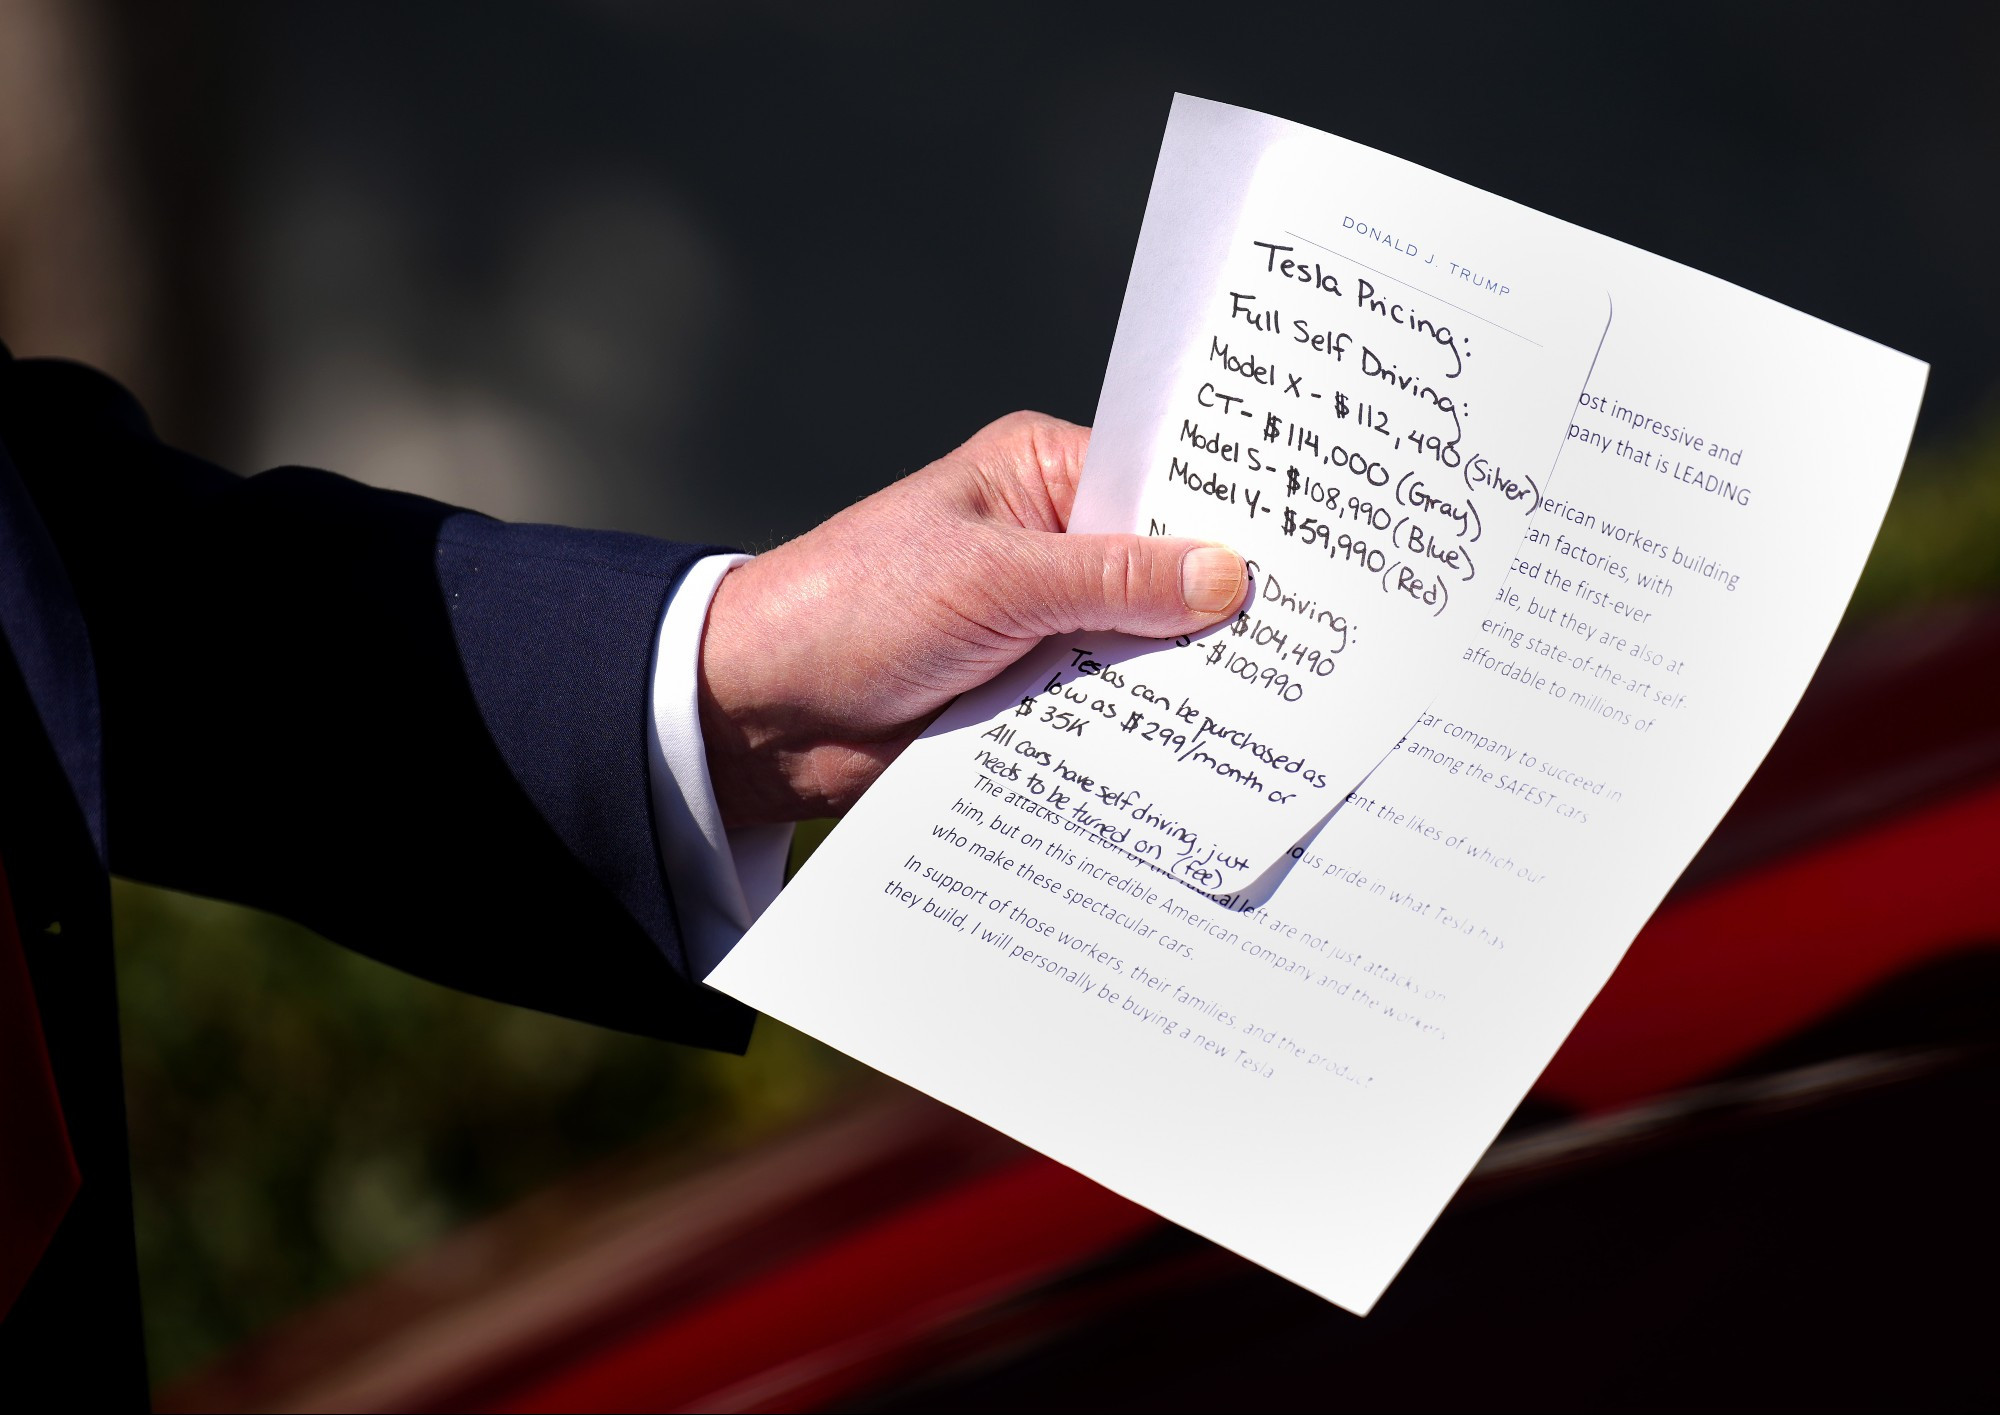 DONALD J. TRUMP
Tesla Pricing:
Full Self Driving:
Model X - $112,490 (Silver)
CT- $114,000 (Gray)
Model S- $108,990 (Blue)
Model Y- $59,990 (Red)
Driving:
$104,490
S - $100,990
Teslas can be purchased as
low as $299/month or
$35K
All cars have self driving, just
needs to be turned on (fee)
impressive and
that is LEADING
workers building
factories, with
the first-ever
but they are also at
state-of-the-art self-
affordable to millions of
company to succeed in
among the SAFEST cars
the likes of which our
pride in what Tesla has
The attacks on Elon by the radical left are not just attacks on
him, but on this incredible American company and the workers
who make these spectacular cars.
In support of those workers, their families, and the product
they build, I will personally be buying a new Tesla